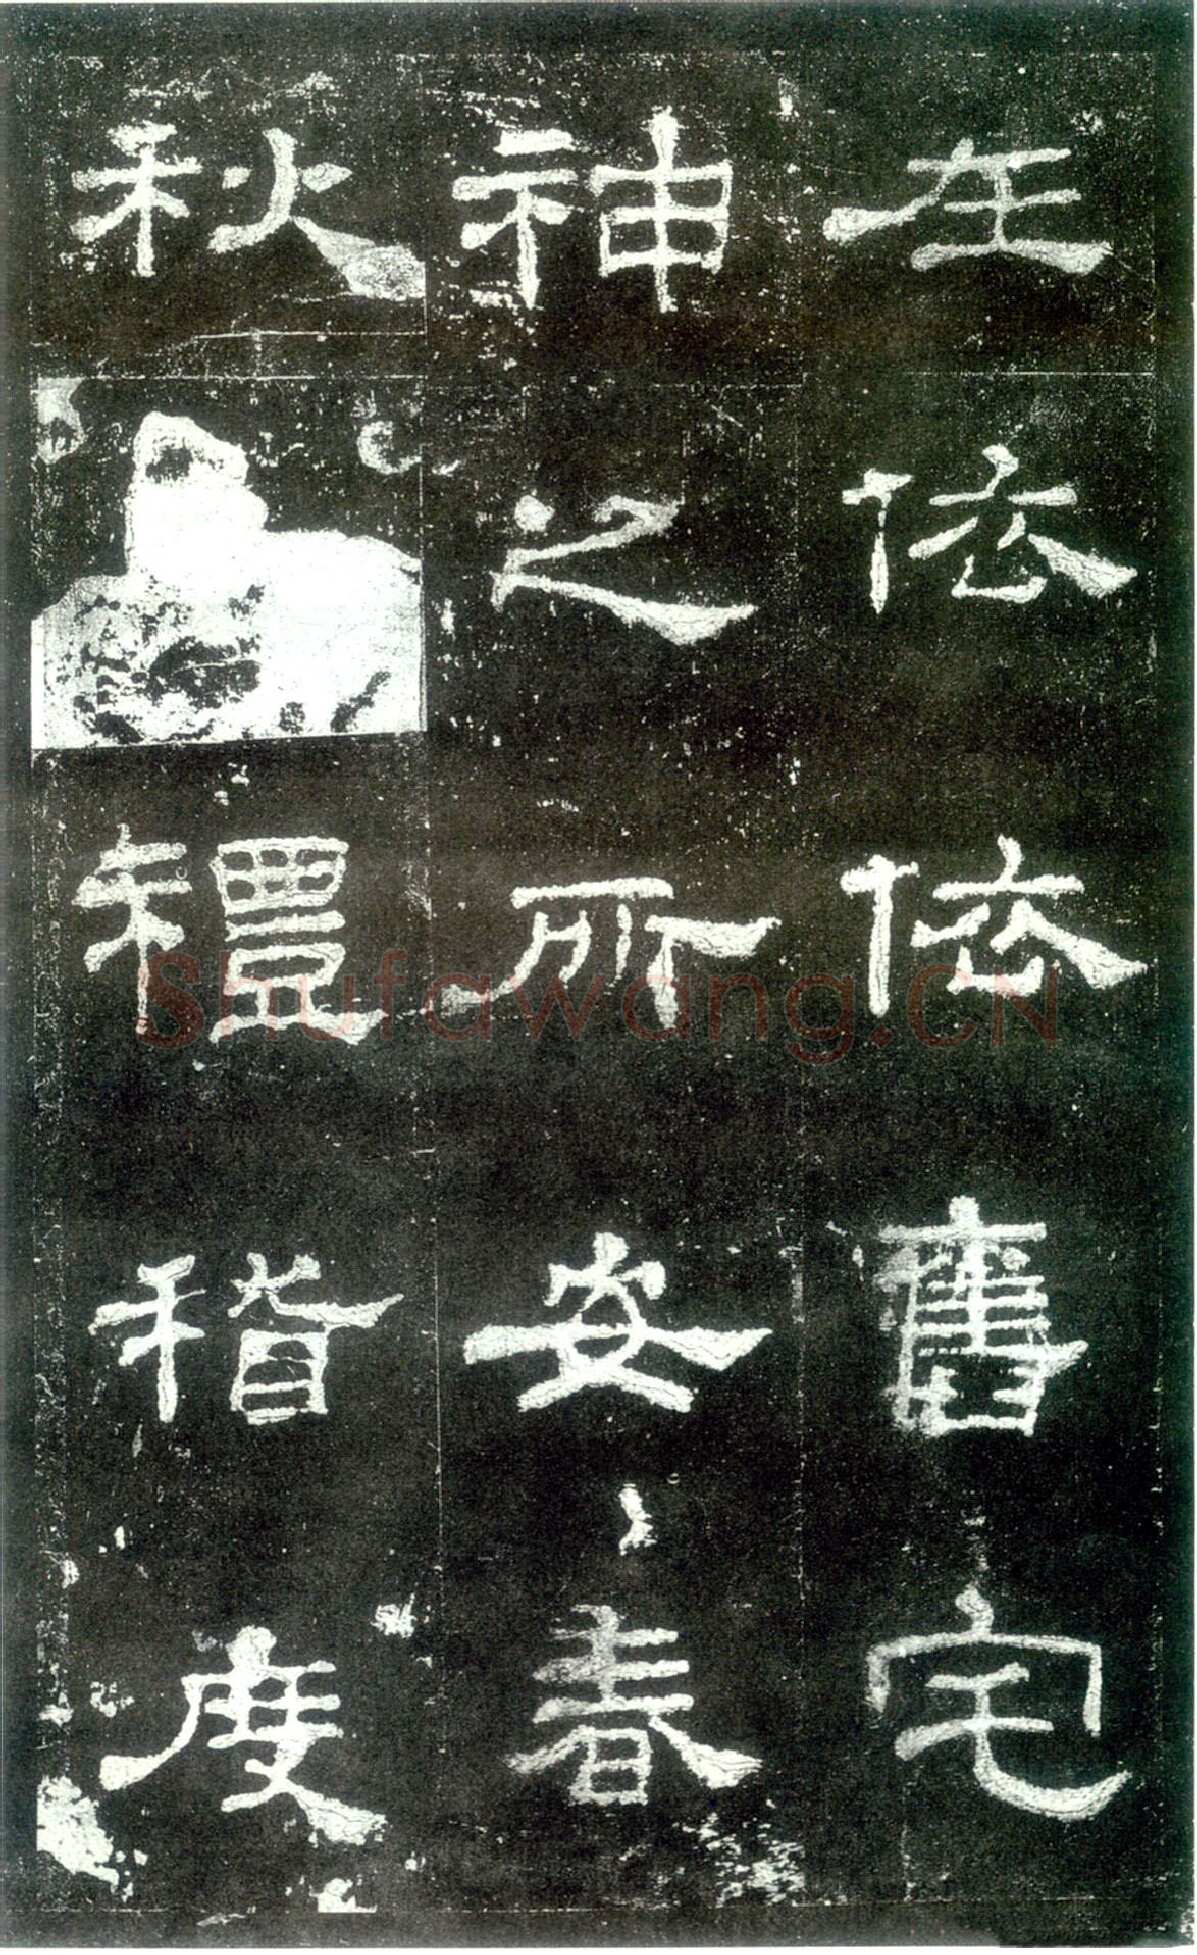 在依依舊宅
神之所安春
秋 禮稽度
Shufawang.CN